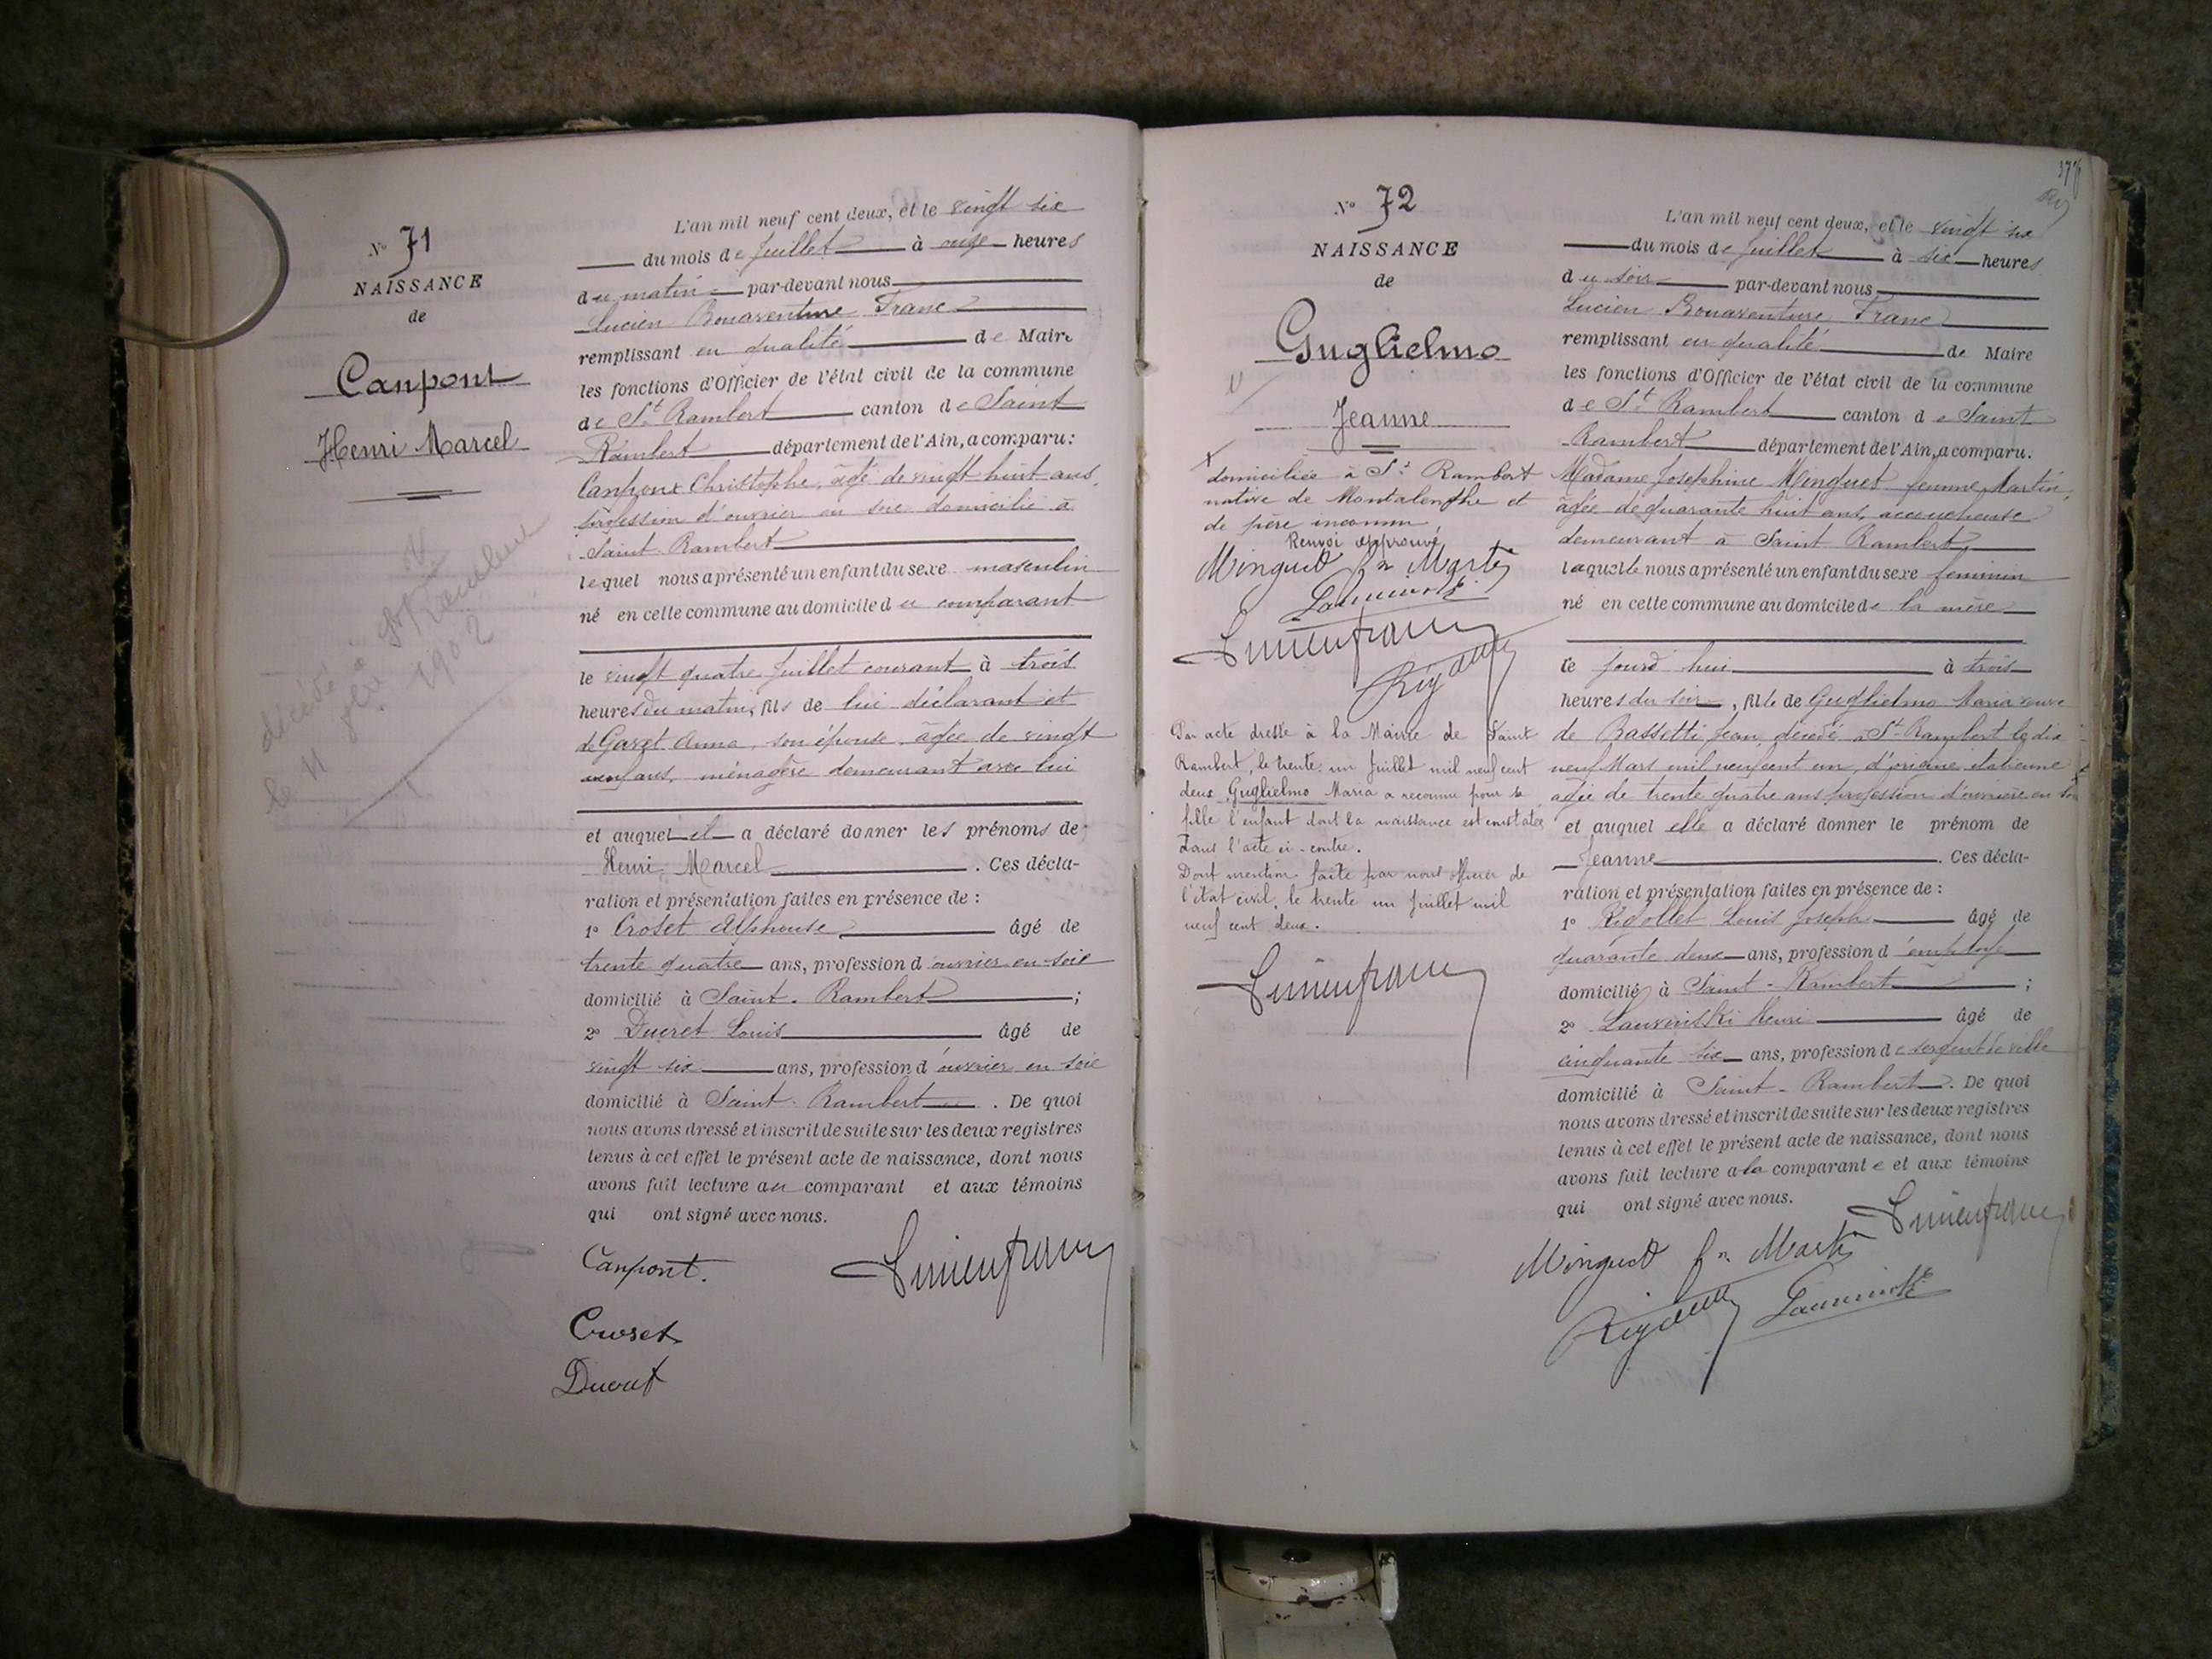 N° 71
NAISSANCE
de
Canpont
Henri Marcel
décédé à St Rambert
le 11 1902
L'an mil neuf cent deux, et le vingt six
du mois de juillet à onze heures
du matin par-devant nous
Lucien Bonaventure Franc
remplissant en qualité de Maire
les fonctions d'Officier de l'état civil de la commune
de St Rambert canton de Saint
Rambert département de l'Ain, a comparu:
Canpont Christophe, âgé de vingt huit ans,
profession d'ouvrier en soie domicilié à
Saint-Rambert
lequel nous a présenté un enfant du sexe masculin
né en cette commune au domicile du comparant
le vingt quatre juillet courant à trois
heures du matin, fils de lui déclarant et
de Garet Anna, son épouse, âgée de vingt
ans, ménagère demeurant avec lui
et auquel il a déclaré donner les prénoms de
Henri Marcel. Ces décla-
ration et présentation faites en présence de :
1° Croset Alphonse âgé de
trente quatre ans, profession d'ouvrier en soie
domicilié à Saint-Rambert ;
2° Ducret Louis âgé de
vingt six ans, profession d'ouvrier en soie
domicilié à Saint-Rambert. De quoi
nous avons dressé et inscrit de suite sur les deux registres
tenus à cet effet le présent acte de naissance, dont nous
avons fait lecture au comparant et aux témoins
qui ont signé avec nous.
Canpont. Lucien franc
Croset
Ducret
N° 72
NAISSANCE
de
Guglielmo
Jeanne
domiciliée à St Rambert
native de Montalenghe et
de père inconnu,
Renvoi approuvé
Minguet fe Martin
Lauvinski
Lucien franc
Rigollet
Par acte dressé à la Mairie de Saint
Rambert, le trente un juillet mil neuf cent
deux Guglielmo Maria a reconnu pour sa
fille l'enfant dont la naissance est constatée
dans l'acte ci-contre.
Dont mention faite par nous officier de
l'état civil, le trente un juillet mil
neuf cent deux.
Lucien franc
L'an mil neuf cent deux, et le vingt six
du mois de juillet à six heures
du soir par-devant nous
Lucien Bonaventure Franc
remplissant en qualité de Maire
les fonctions d'Officier de l'état civil de la commune
de St Rambert canton de Saint
Rambert département de l'Ain, a comparu.
Madame Joséphine Menguet femme Martin,
âgée de quarante huit ans, accoucheuse
demeurant à Saint Rambert
laquelle nous a présenté un enfant du sexe féminin
né en cette commune au domicile de la mère
ce jourd'hui à trois
heures du soir, fille de Guglielmo Maria veuve
de Bassetti Jean, décédé à St-Rambert le dix
neuf Mars mil neuf cent un, d'origine italienne
agée de trente quatre ans profession d'ouvrière en soie
et auquel elle a déclaré donner le prénom de
Jeanne. Ces décla-
ration et présentation faites en présence de :
1° Rigollet Louis Joseph âgé de
quarante deux ans, profession d'employé
domicilié à Saint-Rambert ;
2° Lauvinski Henri âgé de
cinquante six ans, profession de sergent de ville
domicilié à Saint-Rambert. De quoi
nous avons dressé et inscrit de suite sur les deux registres
tenus à cet effet le présent acte de naissance, dont nous
avons fait lecture à la comparante et aux témoins
qui ont signé avec nous.
Lucien franc
Minguet fe Martin
Rigollet Lauvinski